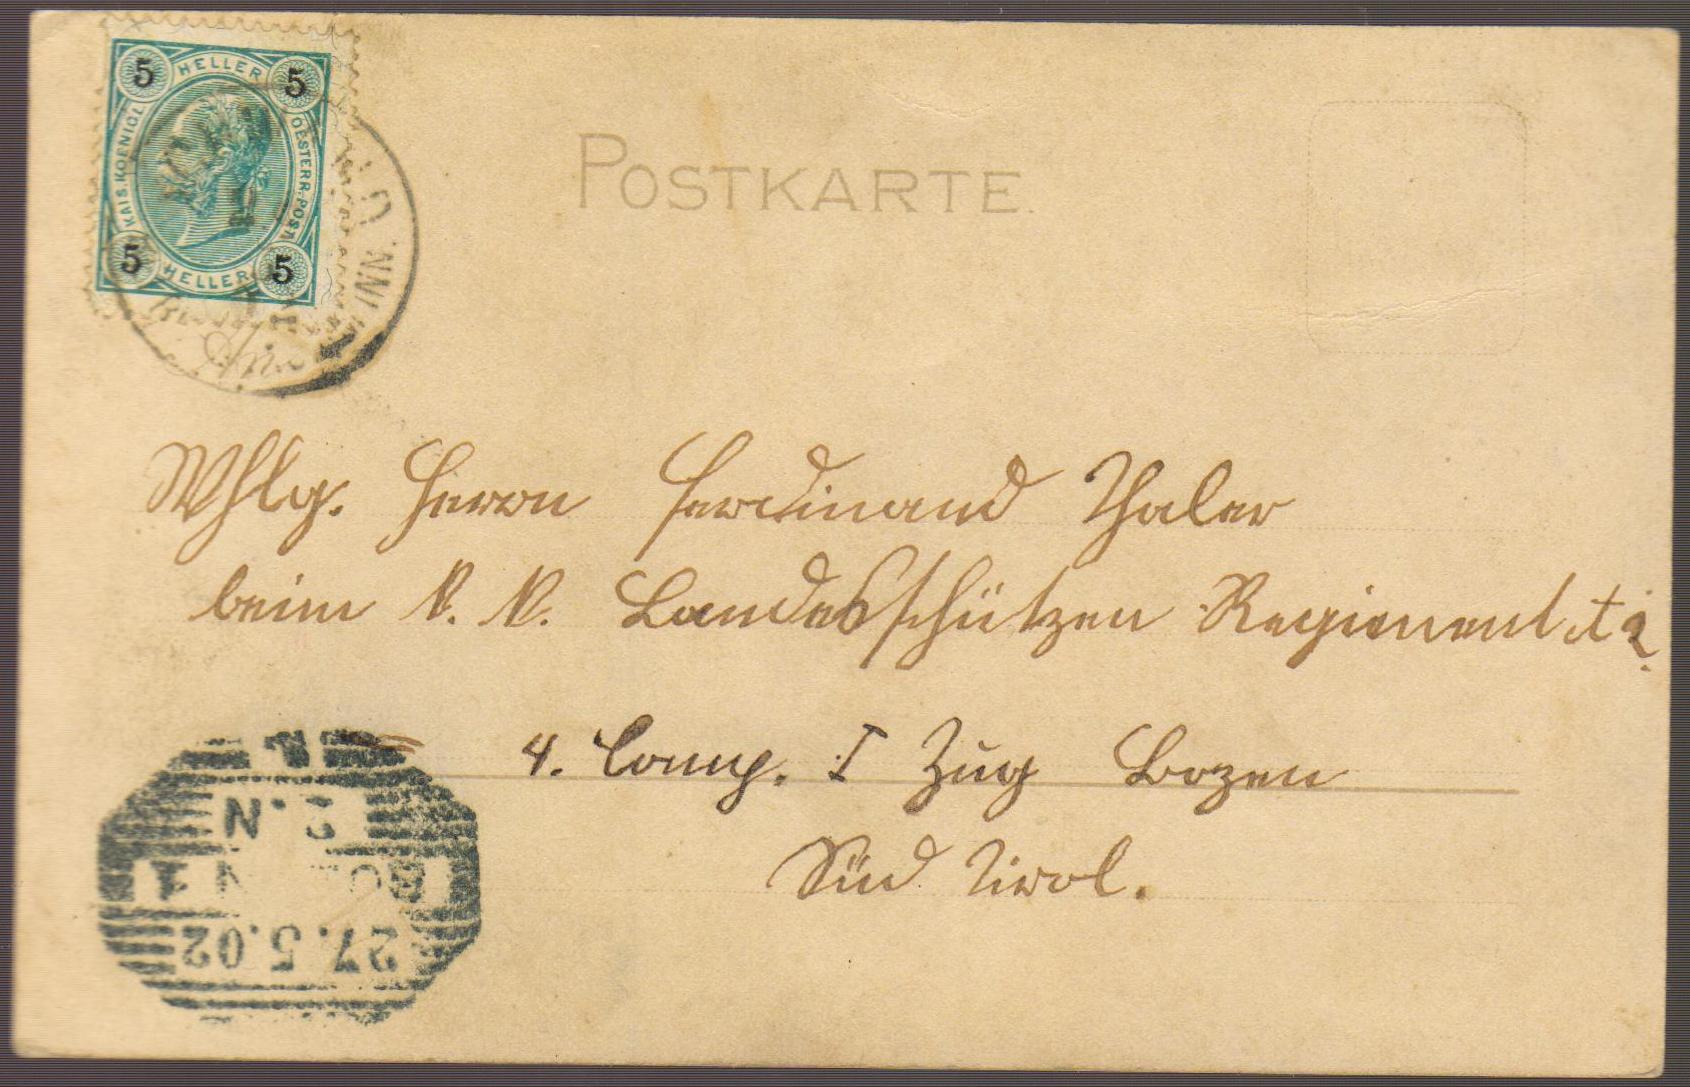 5 HELLER 5
KAIS. KOENIGL. OESTERR. POST.
5 HELLER 5
POSTKARTE.
Whlg. Herrn Ferdinand Thaler
beim k. k. Landesschützen Regiement
4. Comp. I Zug Bozen
Süd Tirol.
27.5.02